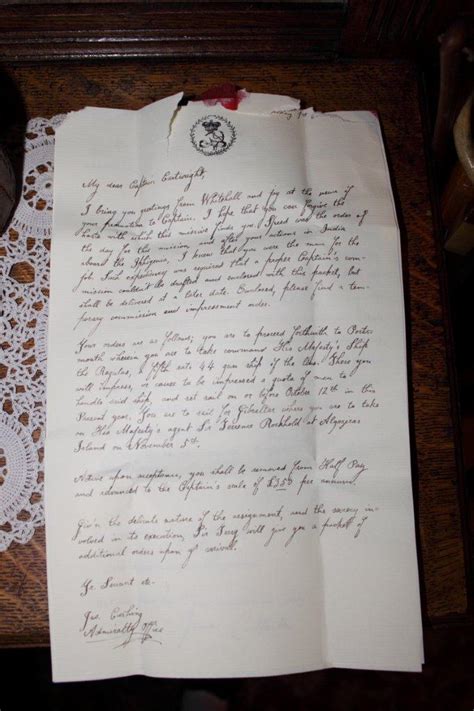 My dear Captain Cartwright,
I bring you greetings from Whitehall and joy at the news of
your promotion to Captain. I hope that you can forgive the
haste with which this missive finds you. Speed was the order of
the day for this mission, and after your actions in India
aboard the Iphigenia, I knew that you were the man for the
job. Such expediency was required that a proper Captain's com-
mission couldn't be drafted and enclosed with this packet, but
shall be delivered at a later date. Enclosed, please find a tem-
porary commission and impressment order.
Your orders are as follows; you are to proceed forthwith to Ports-
mouth wherein you are to take command His Majesty's Ship
the Regulus, a fifth rate 44 gun ship of the line. There you
will impress, or cause to be impressed a quota of men to
handle said ship, and set sail on or before October 12th in this
Present year. You are to sail for Gibraltar where you are to take
on His Majesty's agent Sir Terrence Rockhold at
Island on November 5th.
Active upon acceptance, you shall be removed from Half Pay
and advanced to the Captain's scale of £350 per annum.
Giv'n the delicate nature of the assignment, and the secrecy in-
volved in its execution, Sir Terry will give you a packet of
additional orders upon yr. arrival.
Yr. Servant etc.
Admiralty Office